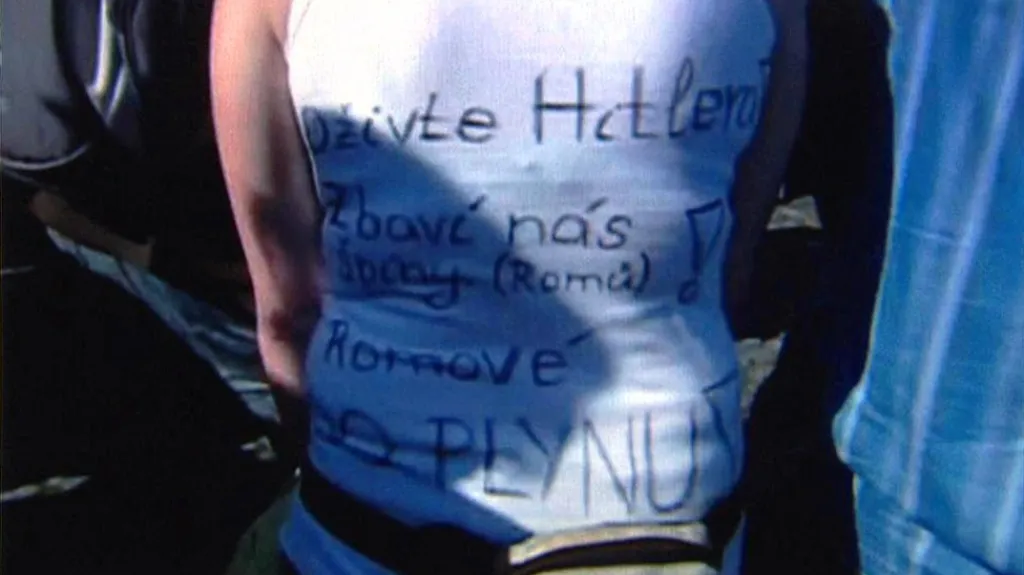 Oživte Hitlera
Zbaví nás !
Špíny (Romů)
Romové
DO PLYNU!